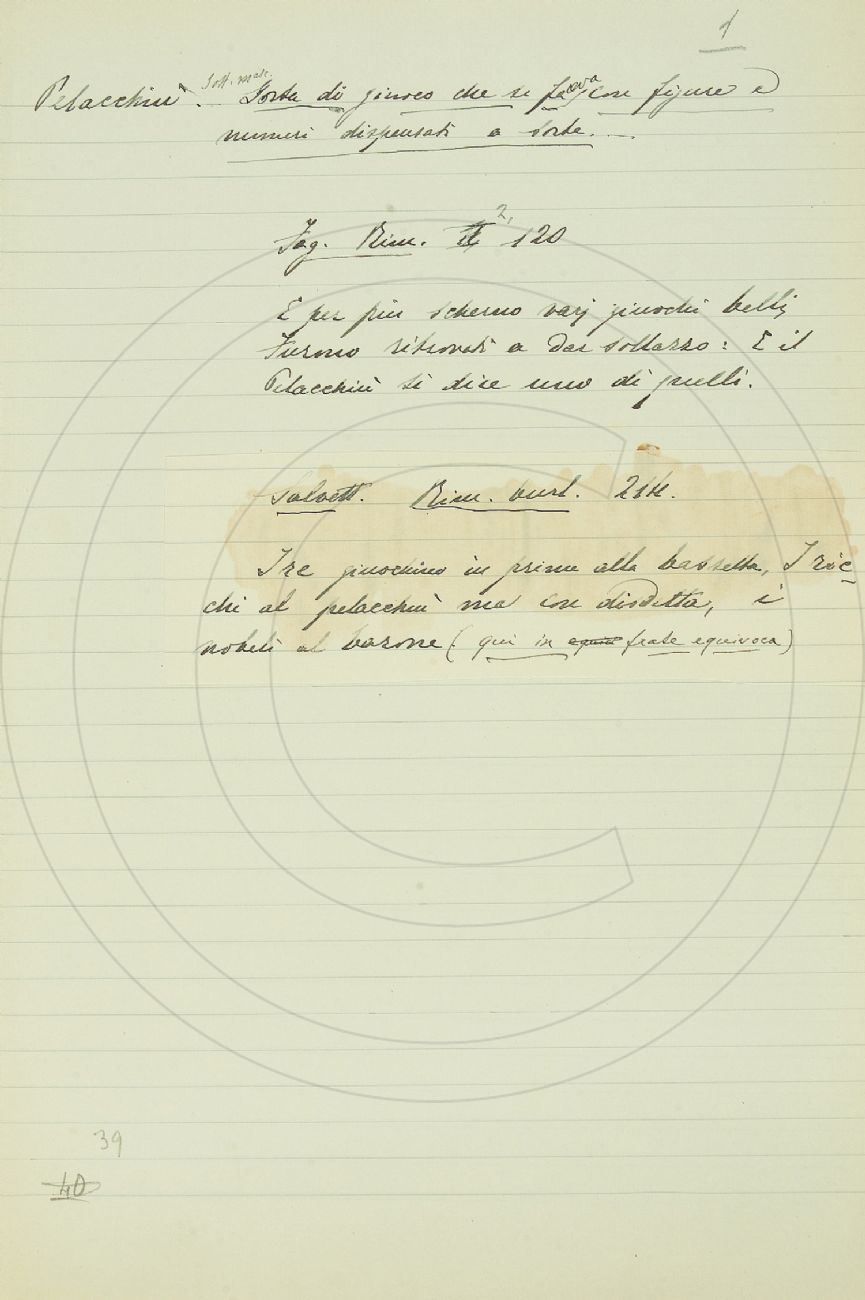 1
Pelacchiù. Sost. masc. Sorta di giuoco che si faceva con figure e
numeri dispensati a sorte. —
Fag. Rim. II 2, 120
E per più scherno varj giuochi belli
Furono ritrovati a dar sollazzo: E il
Pelacchiù si dice uno di quelli.
Salvett. Rim. burl. 214.
I re giuochino in prima alla bassetta, I ric-
chi al pelacchiù ma con disdetta, i
nobili al barone (qui in frase equivoca)
39
40